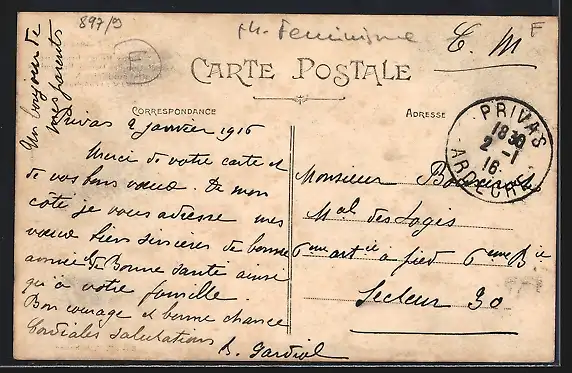 897/9
th. Feminisme
F
C. M
CARTE POSTALE
CORRESPONDANCE
ADRESSE
Un bonjour de
mes parents
PRIVAS
18 30
2 - 1
16
ARDECHE
Privas 2 janvier 1916
Merci de votre carte et
de vos bons vœux. De mon
côté je vous adresse mes
vœux bien sincères de bonne
année & de Bonne santé ainsi
qu'à votre famille.
Bon courage et bonne chance
Cordiales salutations
Gardiol
Monsieur
Mal des Logis
6eme artie à pied 6eme Bie
Secteur 30